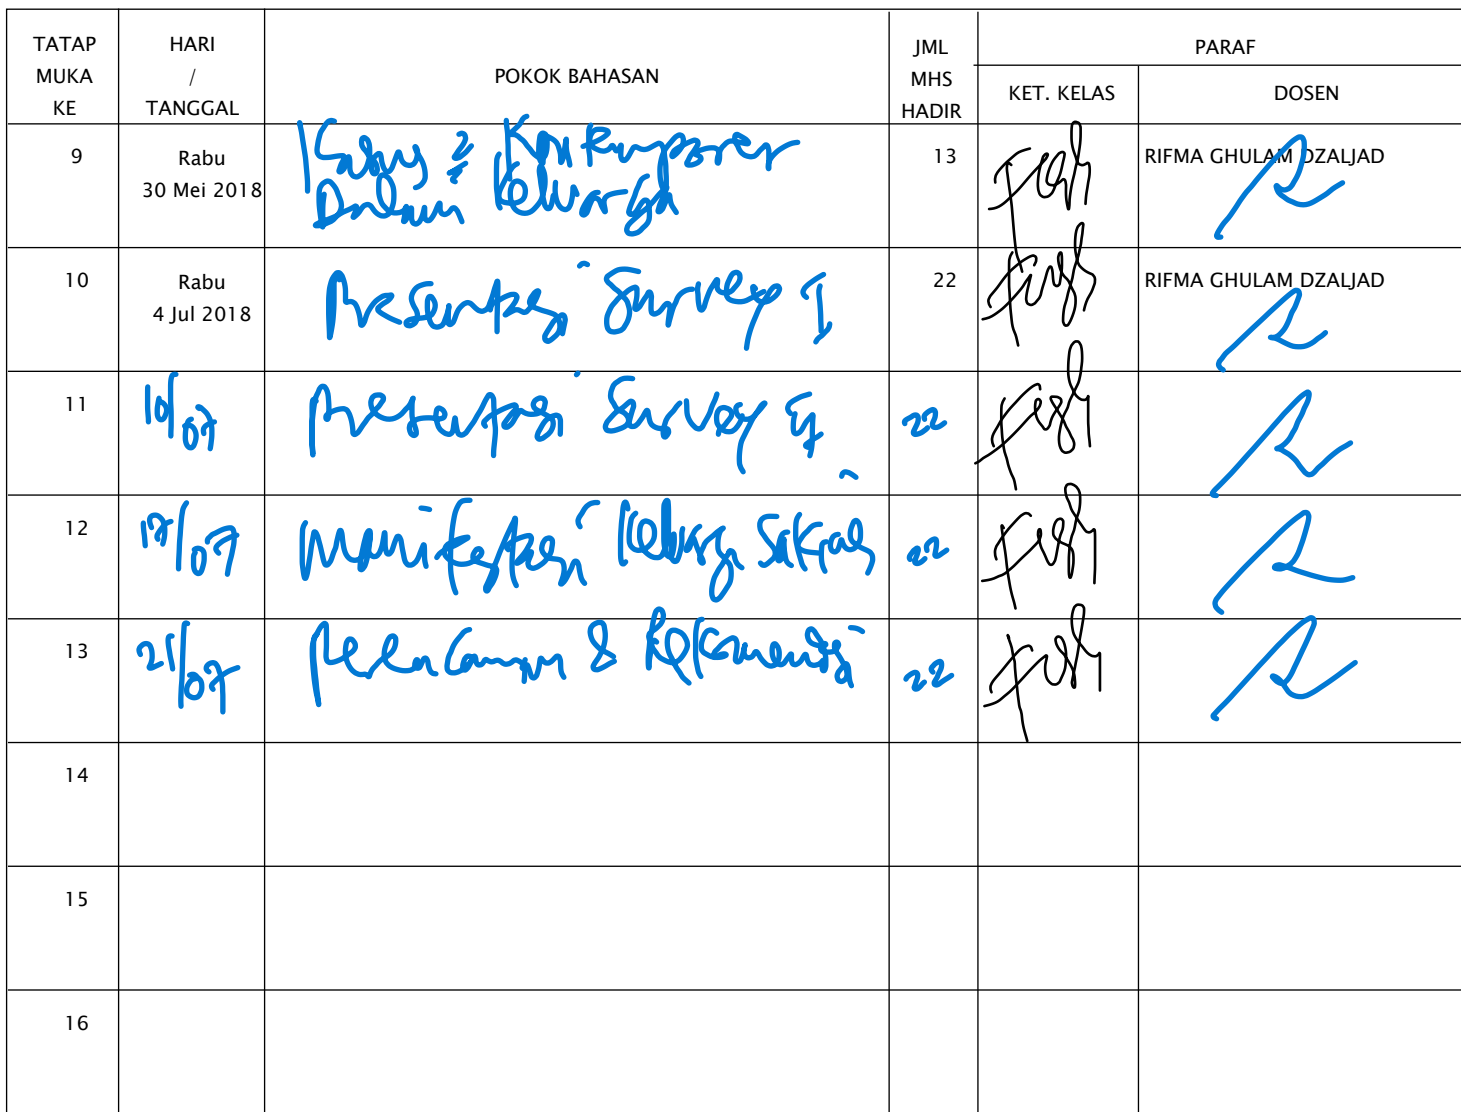 TATAP MUKA KE
HARI / TANGGAL
POKOK BAHASAN
JML MHS HADIR
PARAF
KET. KELAS
DOSEN
9 Rabu 30 Mei 2018 Kasus 2 Kontemporer Dalam Keluarga 13 RIFMA GHULAM DZALJAD
10 Rabu 4 Jul 2018 Presentasi Survey I 22 RIFMA GHULAM DZALJAD
11 10/07 Presentasi Survey II 22
12 17/07 Manifestasi 22
13 /07 & Rekomendasi 22
14
15
16